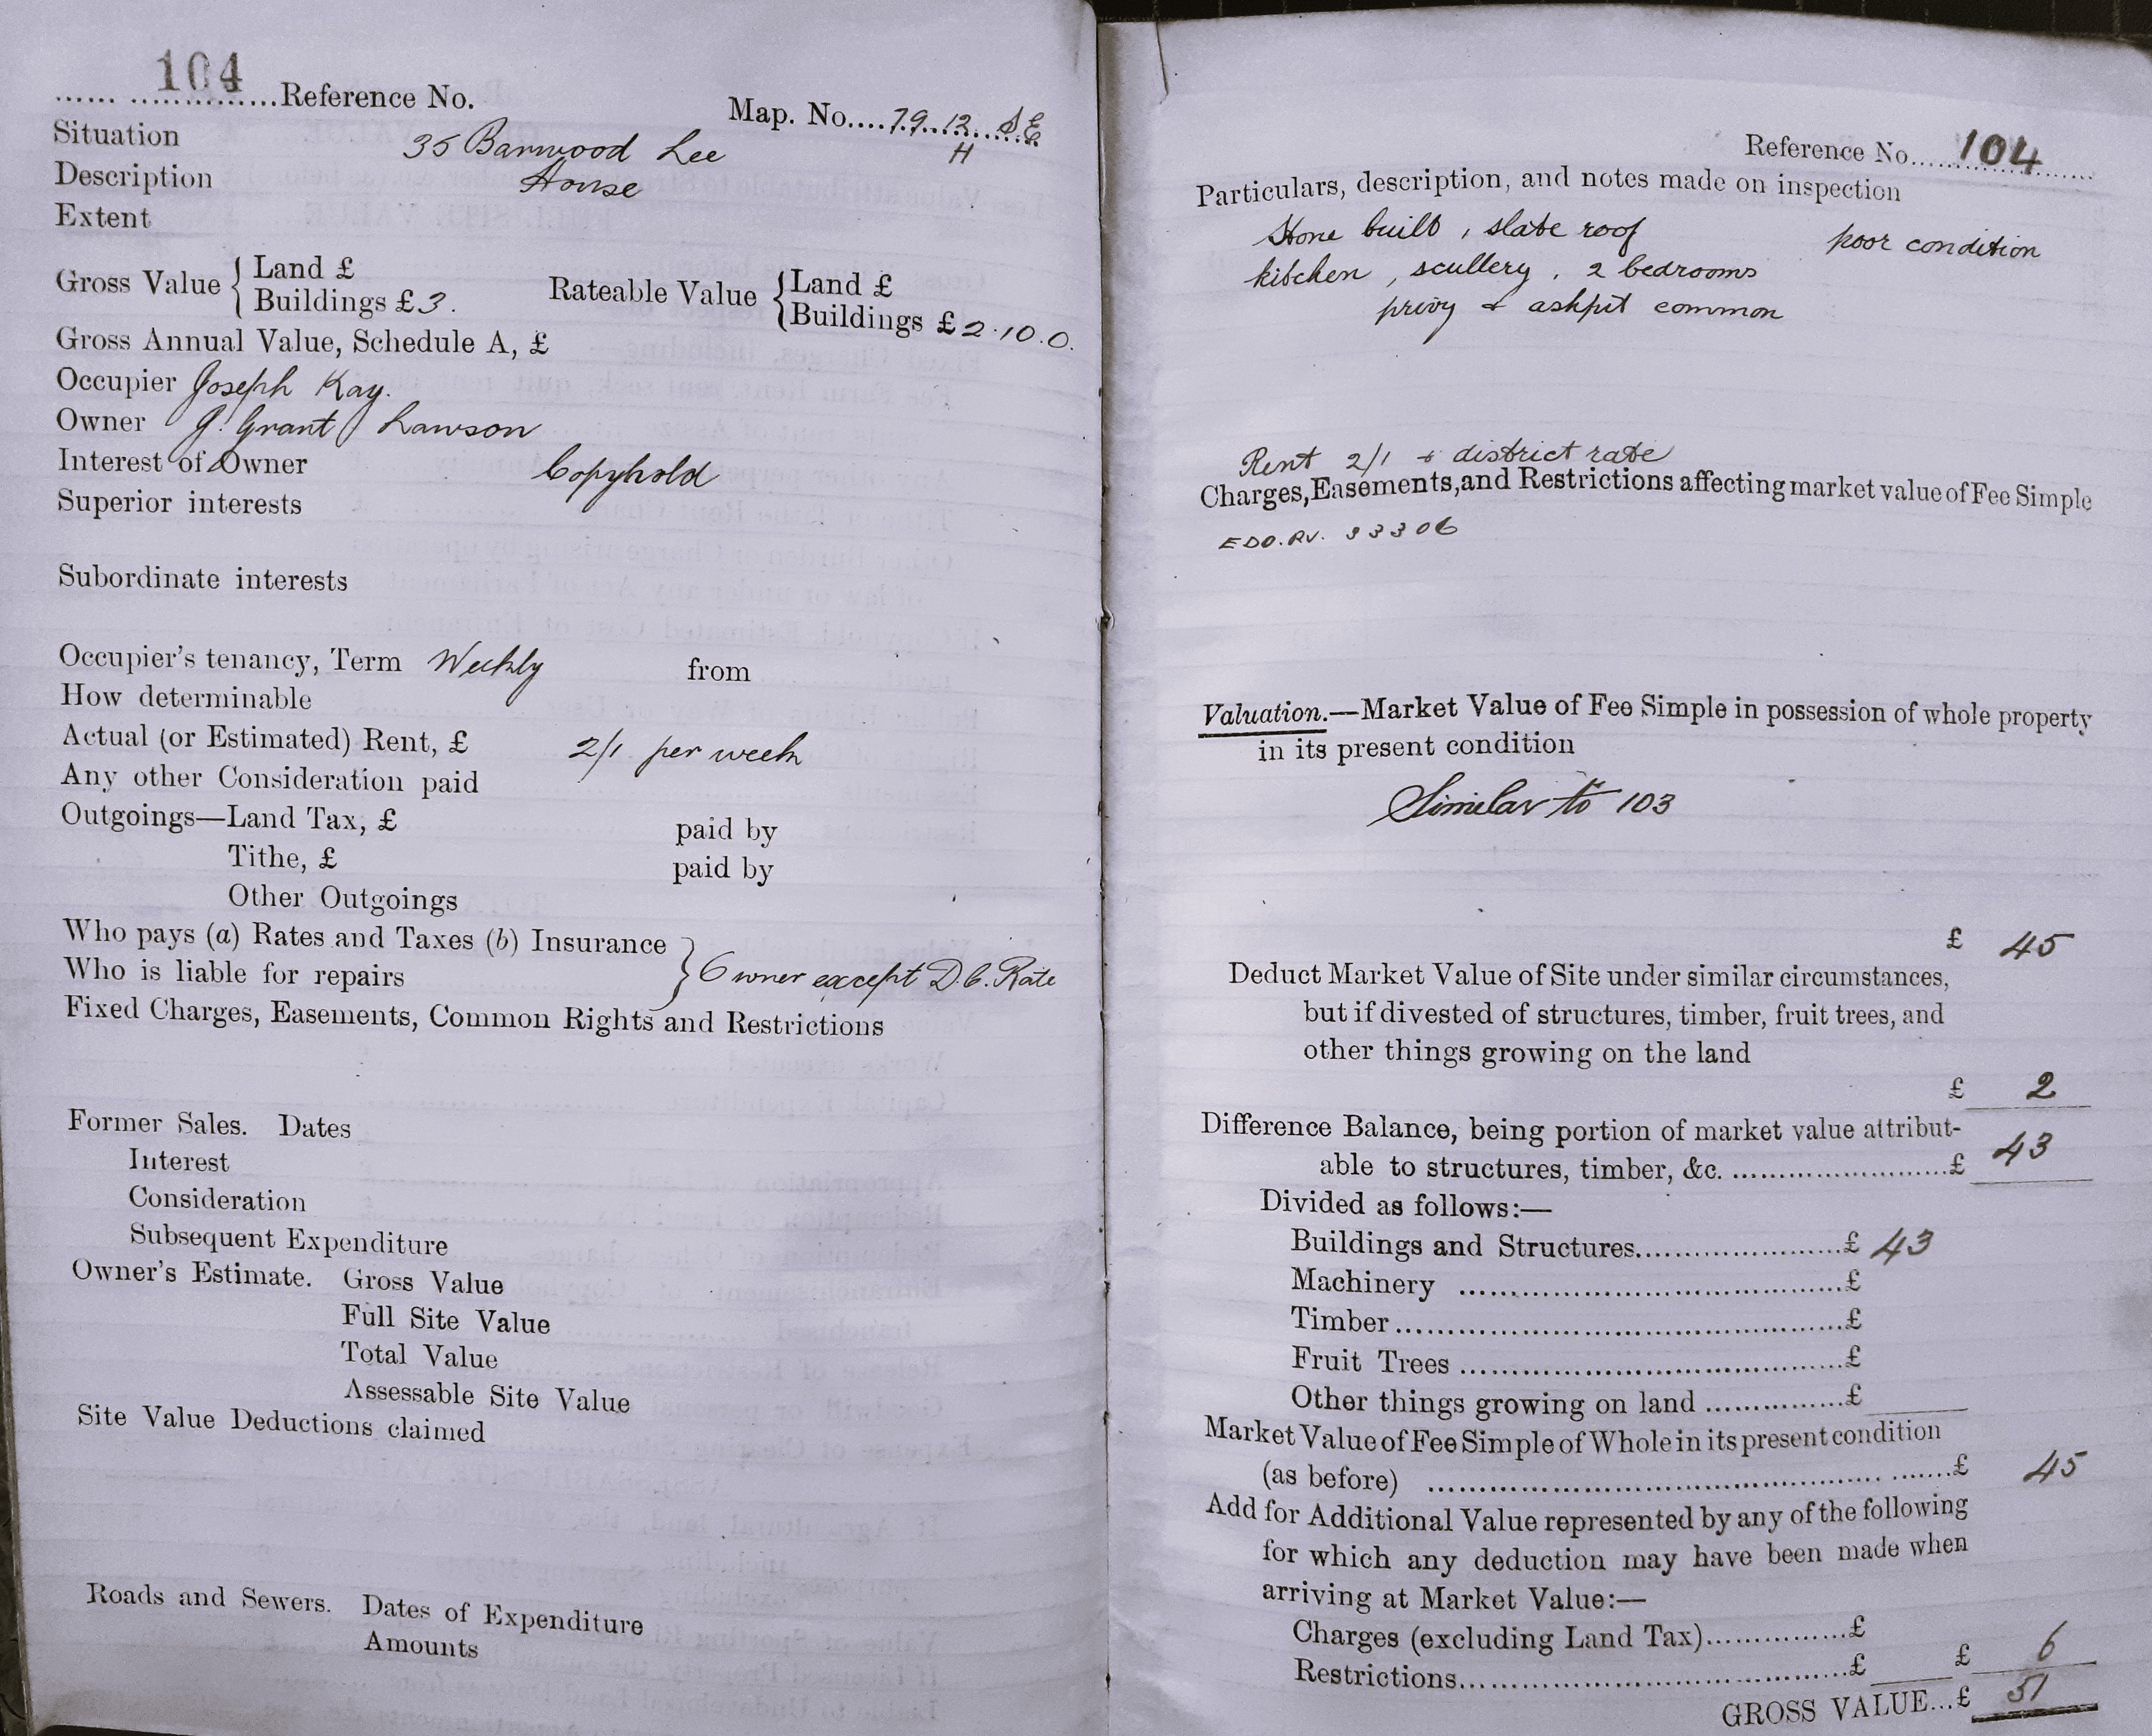 104
...... ...............Reference No.
Map. No....79.12 SE
H
Situation 35 Barwood Lee
Description House
Extent
Gross Value { Land £
Buildings £3.
Rateable Value { Land £
Buildings £2.10.0.
Gross Annual Value, Schedule A, £
Occupier Joseph Kay.
Owner J. Grant Lawson
Interest of Owner Copyhold
Superior interests
Subordinate interests
Occupier's tenancy, Term Weekly from
How determinable
Actual (or Estimated) Rent, £ 2/1 per week
Any other Consideration paid
Outgoings—Land Tax, £ paid by
Tithe, £ paid by
Other Outgoings
Who pays (a) Rates and Taxes (b) Insurance
Who is liable for repairs } Owner except D.C. Rate
Fixed Charges, Easements, Common Rights and Restrictions
Former Sales. Dates
Interest
Consideration
Subsequent Expenditure
Owner's Estimate. Gross Value
Full Site Value
Total Value
Assessable Site Value
Site Value Deductions claimed
Roads and Sewers. Dates of Expenditure
Amounts
Reference No......104.......
Particulars, description, and notes made on inspection
Stone built, slate roof poor condition
kitchen, scullery, 2 bedrooms
privy & ashpit common
Rent 2/1 & district rate
Charges, Easements, and Restrictions affecting market value of Fee Simple
EDO.RV. 33306
Valuation.—Market Value of Fee Simple in possession of whole property
in its present condition
Similar to 103
£ 45
Deduct Market Value of Site under similar circumstances,
but if divested of structures, timber, fruit trees, and
other things growing on the land
£ 2
Difference Balance, being portion of market value attribut-
able to structures, timber, &c. ........................£ 43
Divided as follows:—
Buildings and Structures.......................£ 43
Machinery .........................................£
Timber................................................£
Fruit Trees .........................................£
Other things growing on land ...............£
Market Value of Fee Simple of Whole in its present condition
(as before) ......................................................£ 45
Add for Additional Value represented by any of the following
for which any deduction may have been made when
arriving at Market Value:—
Charges (excluding Land Tax)...............£
Restrictions.........................................£ £ 6
GROSS VALUE...£ 51